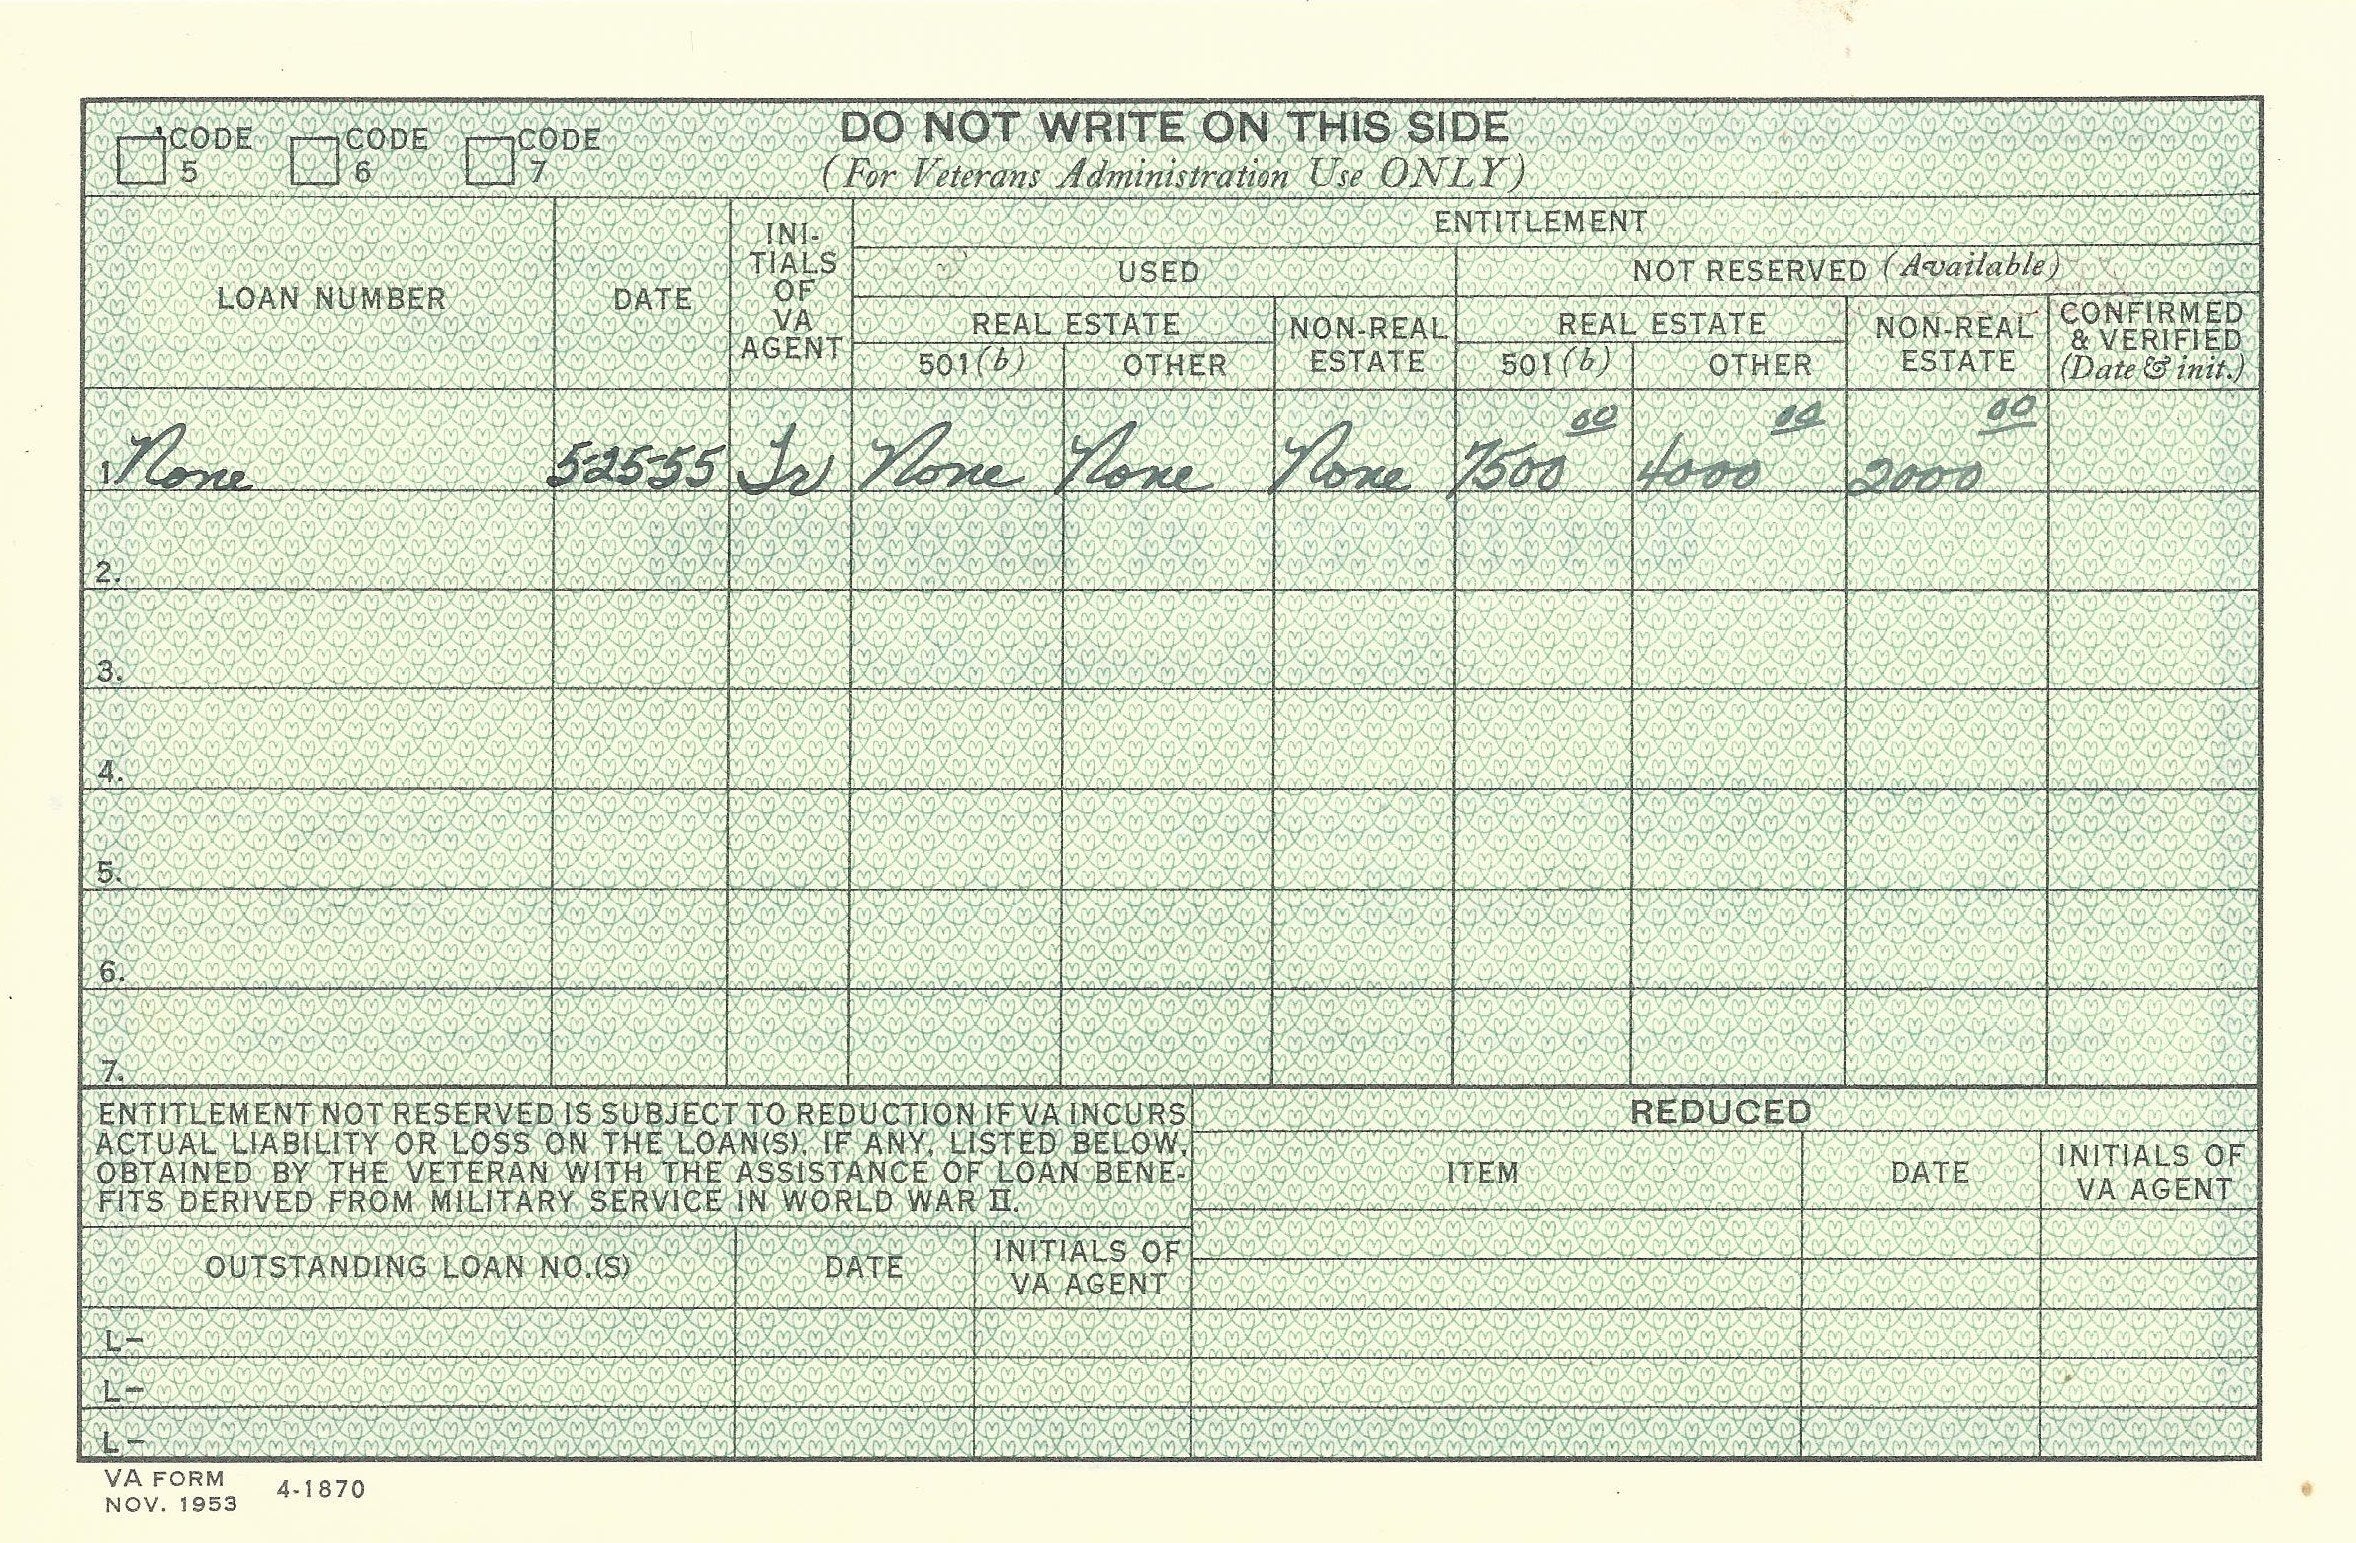 DO NOT WRITE ON THIS SIDE
CODE 5 CODE 6 CODE 7
(For Veterans Administration Use ONLY)
ENTITLEMENT
LOAN NUMBER DATE INI-TIALS OF VA AGENT
USED NOT RESERVED (Available)
REAL ESTATE NON-REAL ESTATE REAL ESTATE NON-REAL ESTATE CONFIRMED & VERIFIED (Date & init.)
501(b) OTHER 501(b) OTHER
1. None 5-25-55 None None None 7500 00 4000 00 2000 00
2.
3.
4.
5.
6.
7.
ENTITLEMENT NOT RESERVED IS SUBJECT TO REDUCTION IF VA INCURS
ACTUAL LIABILITY OR LOSS ON THE LOAN(S), IF ANY, LISTED BELOW,
OBTAINED BY THE VETERAN WITH THE ASSISTANCE OF LOAN BENE-
FITS DERIVED FROM MILITARY SERVICE IN WORLD WAR II.
OUTSTANDING LOAN NO.(S) DATE INITIALS OF VA AGENT
L-
L-
L-
REDUCED
ITEM DATE INITIALS OF VA AGENT
VA FORM
NOV. 1953 4-1870